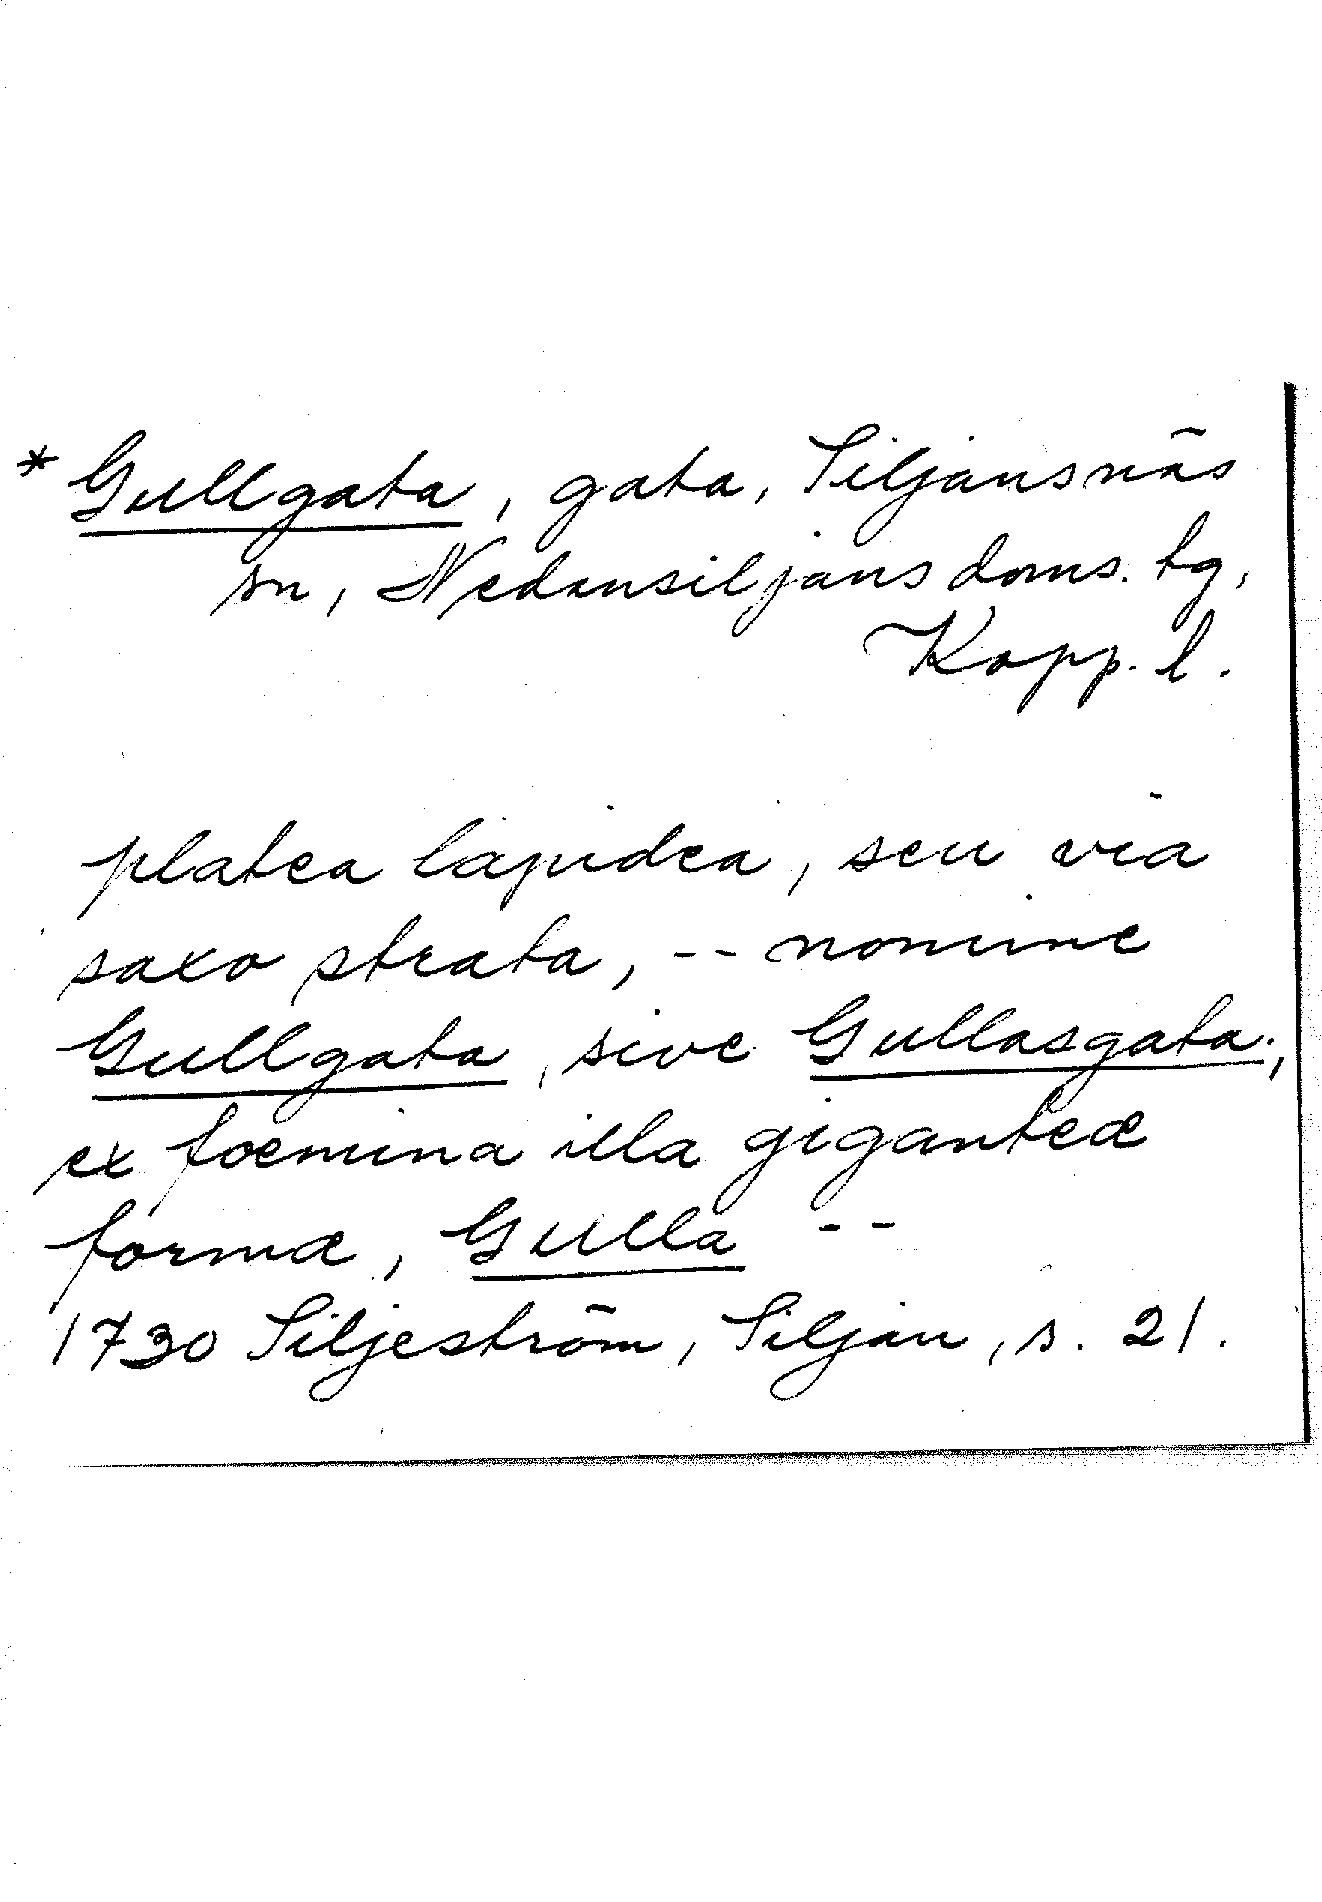 * Gullgata, gata, Siljansnäs
sn, Nedansiljans doms. tg,
Kopp. l.
platea lapidea, seu via
saxo strata, -- nomine
Gullgata, sive Gullasgata;
ex foemina illa giganteæ
formæ, Gulla --
1730 Siljeström, Siljan, s. 21.